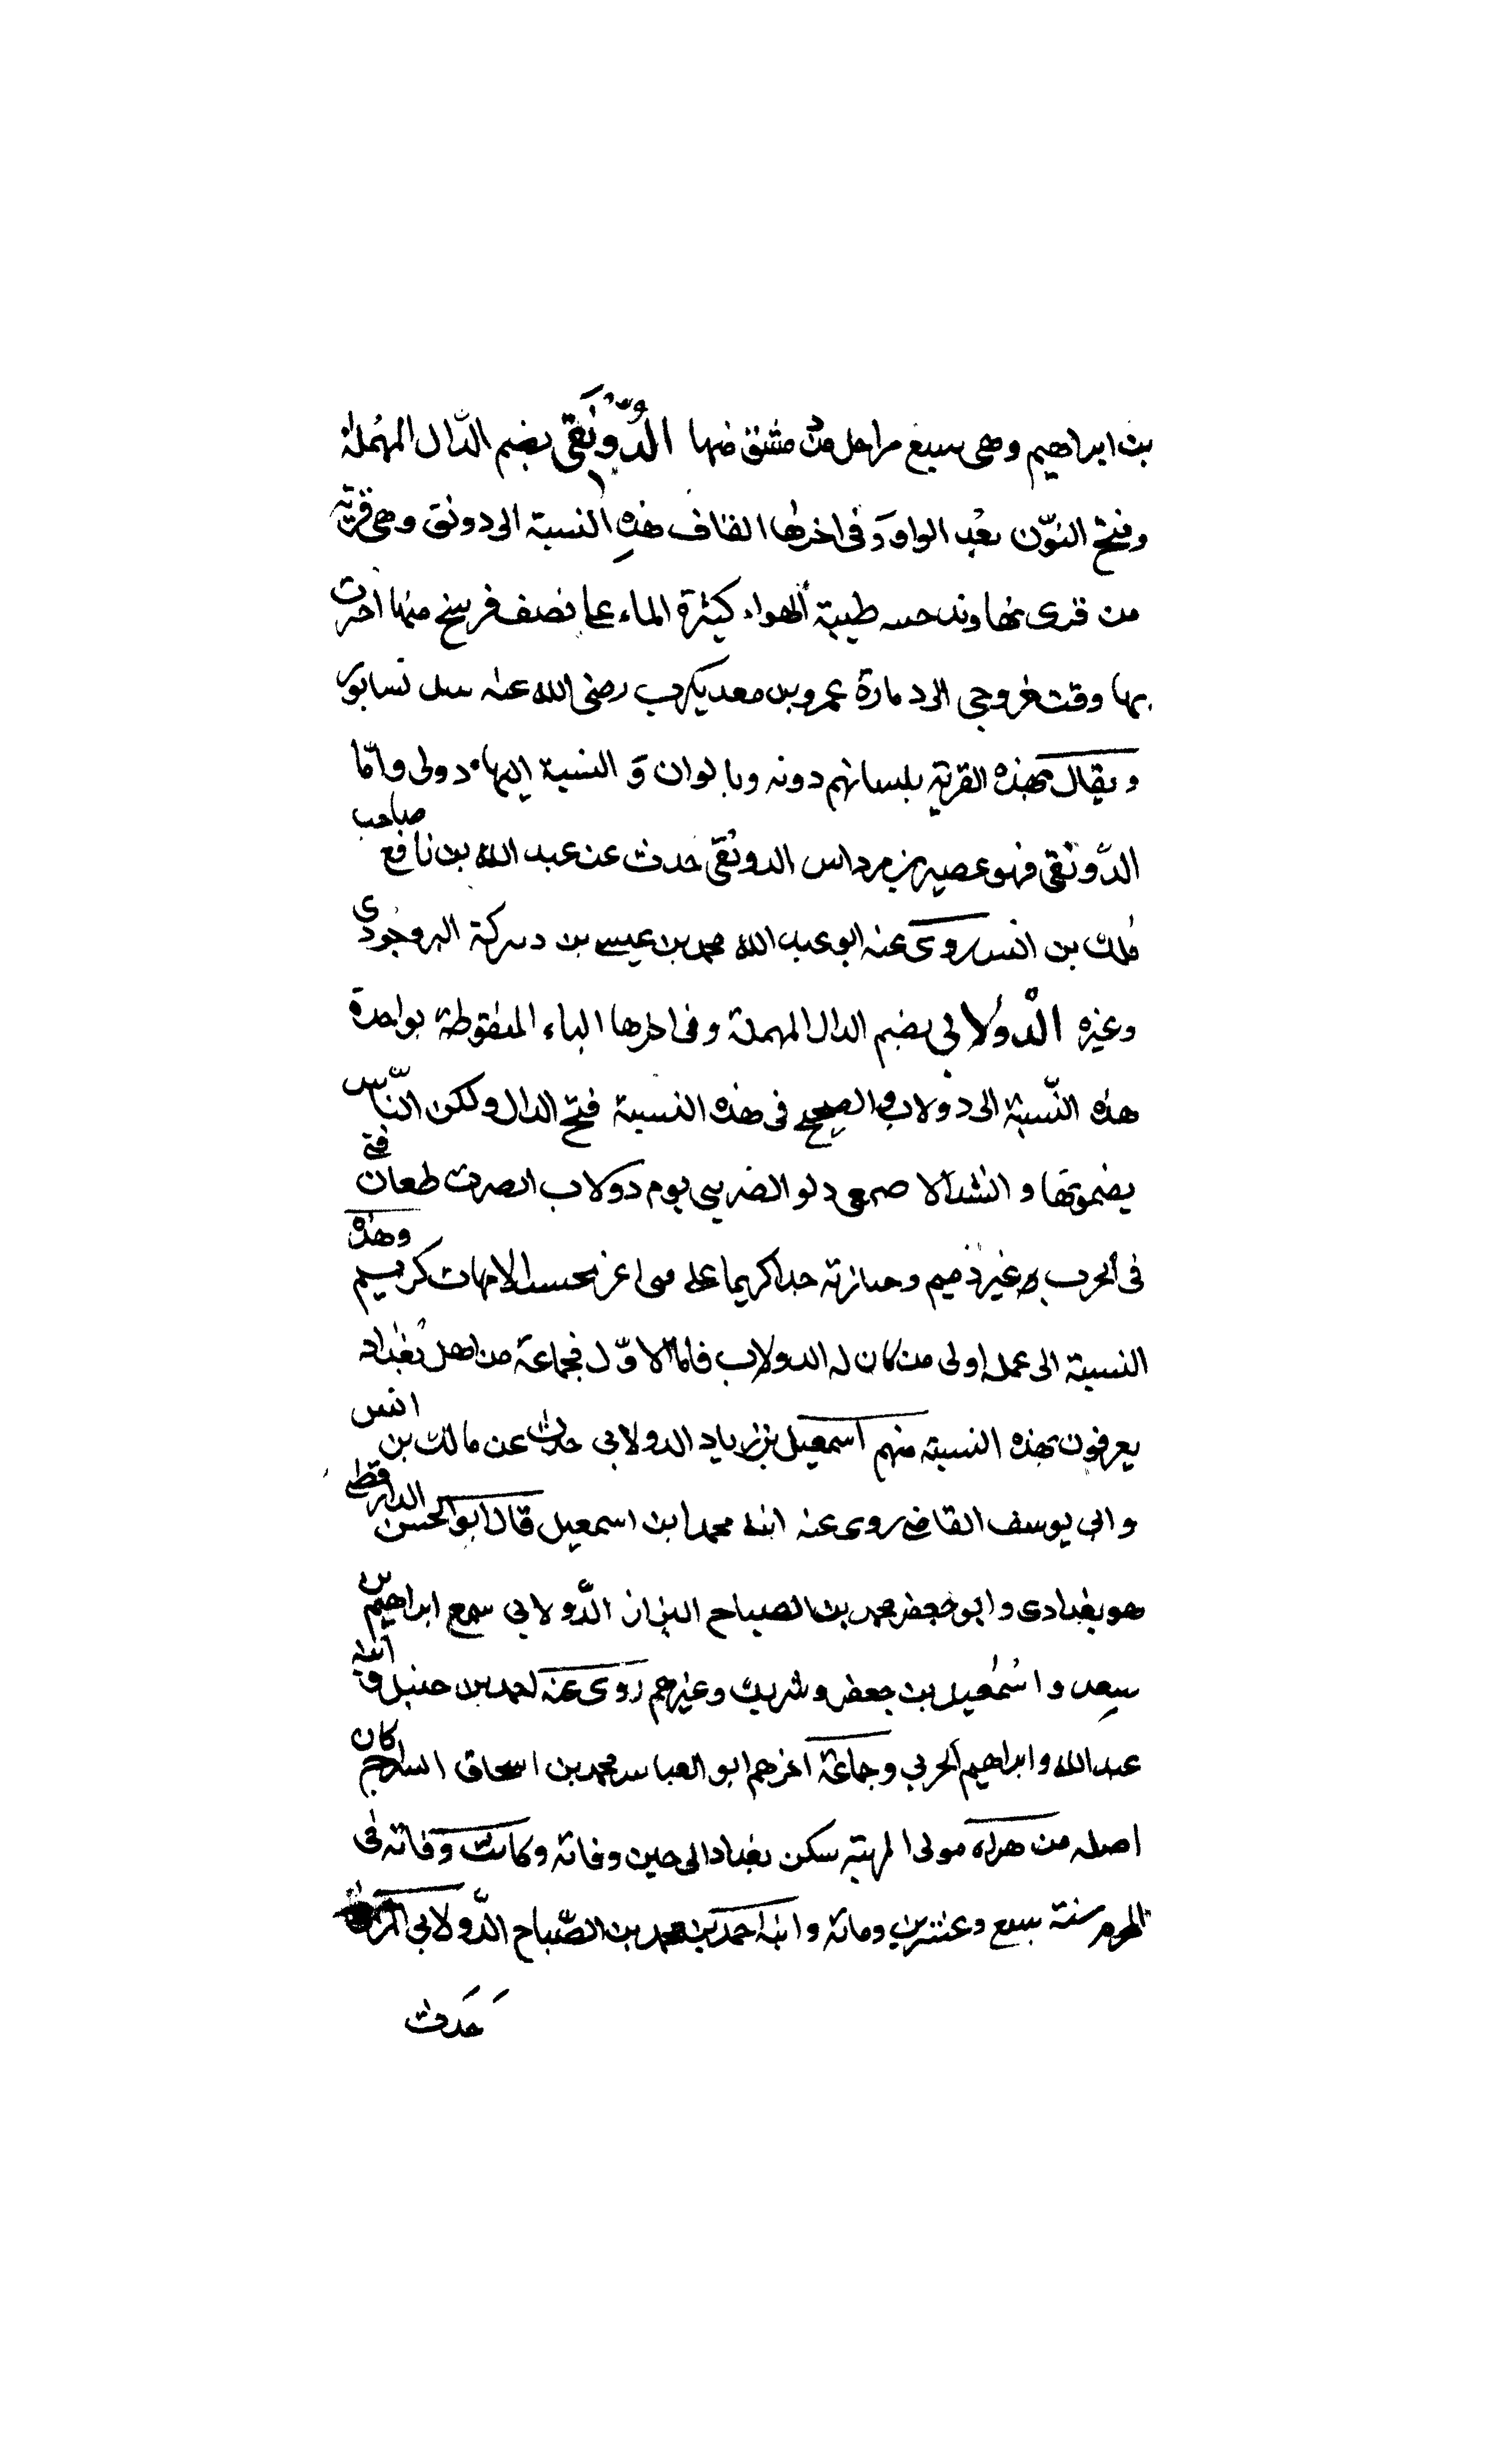 بن ابراهيم وهى سبع مراحل من دمشق منها الدُّونَقى بضم الدال المهملة
وفتح النّون بعد الواو وَفى اخرها القاف هذه النسبة الى دونق وهى قرية
من قرى نهاوند حسنه طيبة الهواء كثيرة الماء على نصف فرسخ منها اجتزت
بها وقت خروجى الى زيارة عمرو بن معديكرب رضى الله عنه
ويقال لهذه القرية بلسانهم دونه وبا لوان وَ النسبة اليها دونى وامّا
الدّونقى فهو عمير بن مرداس الدونقى حدث عن عبد الله بن نافع صاحب
ملك بن انس روى عنه ابو عبد الله محمد بن عيسى بن ديزكة البروجردى
وغيره الدُولابى بضم الدال المهملة وفى اخرها الباء المنقوطة بواحدة
هذه النّسبة الى دولاب والصحيح فى هذه النسبة فتح الدال ولكن النّاس
يضمونها وانشد الاصمعى ولو ابصرتنى يوم دولاب ابصرت طعان فتى
فى الحرب غير ذميم كريما على
وهذه النسبة الى عمله اولى من كان له الدولاب فامّا الاوّل فجماعة من اهل بغداد
يعرفون بهذه النسبة منهم اسمعيل بن زياد الدولابى حدث عن مالك بن انس
وابى يوسف القاضى روى عنه ابنه محمد ابن اسمعيل قال ابو الحسن الدارقطنى
هو بغدادى وابو جعفر محمد بن الصباح البزاز الدّولابى سمع ابراهيم بن
سعد واسمعيل بن جعفر وشريك وغيرهم روى عنه احمد بن حنبل وابنه
عبد الله وابراهيم الحربى وجماعة اخرهم ابو العباس محمد بن اسحاق السراج كان
اصله من هراه مولى المزينة سكن بغداد الى حين وفاته وكانت وفاته فى
المحرم سنة سبع وعشرين ومائة وابنه احمد بن محمد بن الصّباح الدّولابى
حَدث